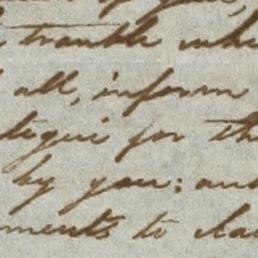 trouble whi
all, inform
tigue for th
by you; and
ments to